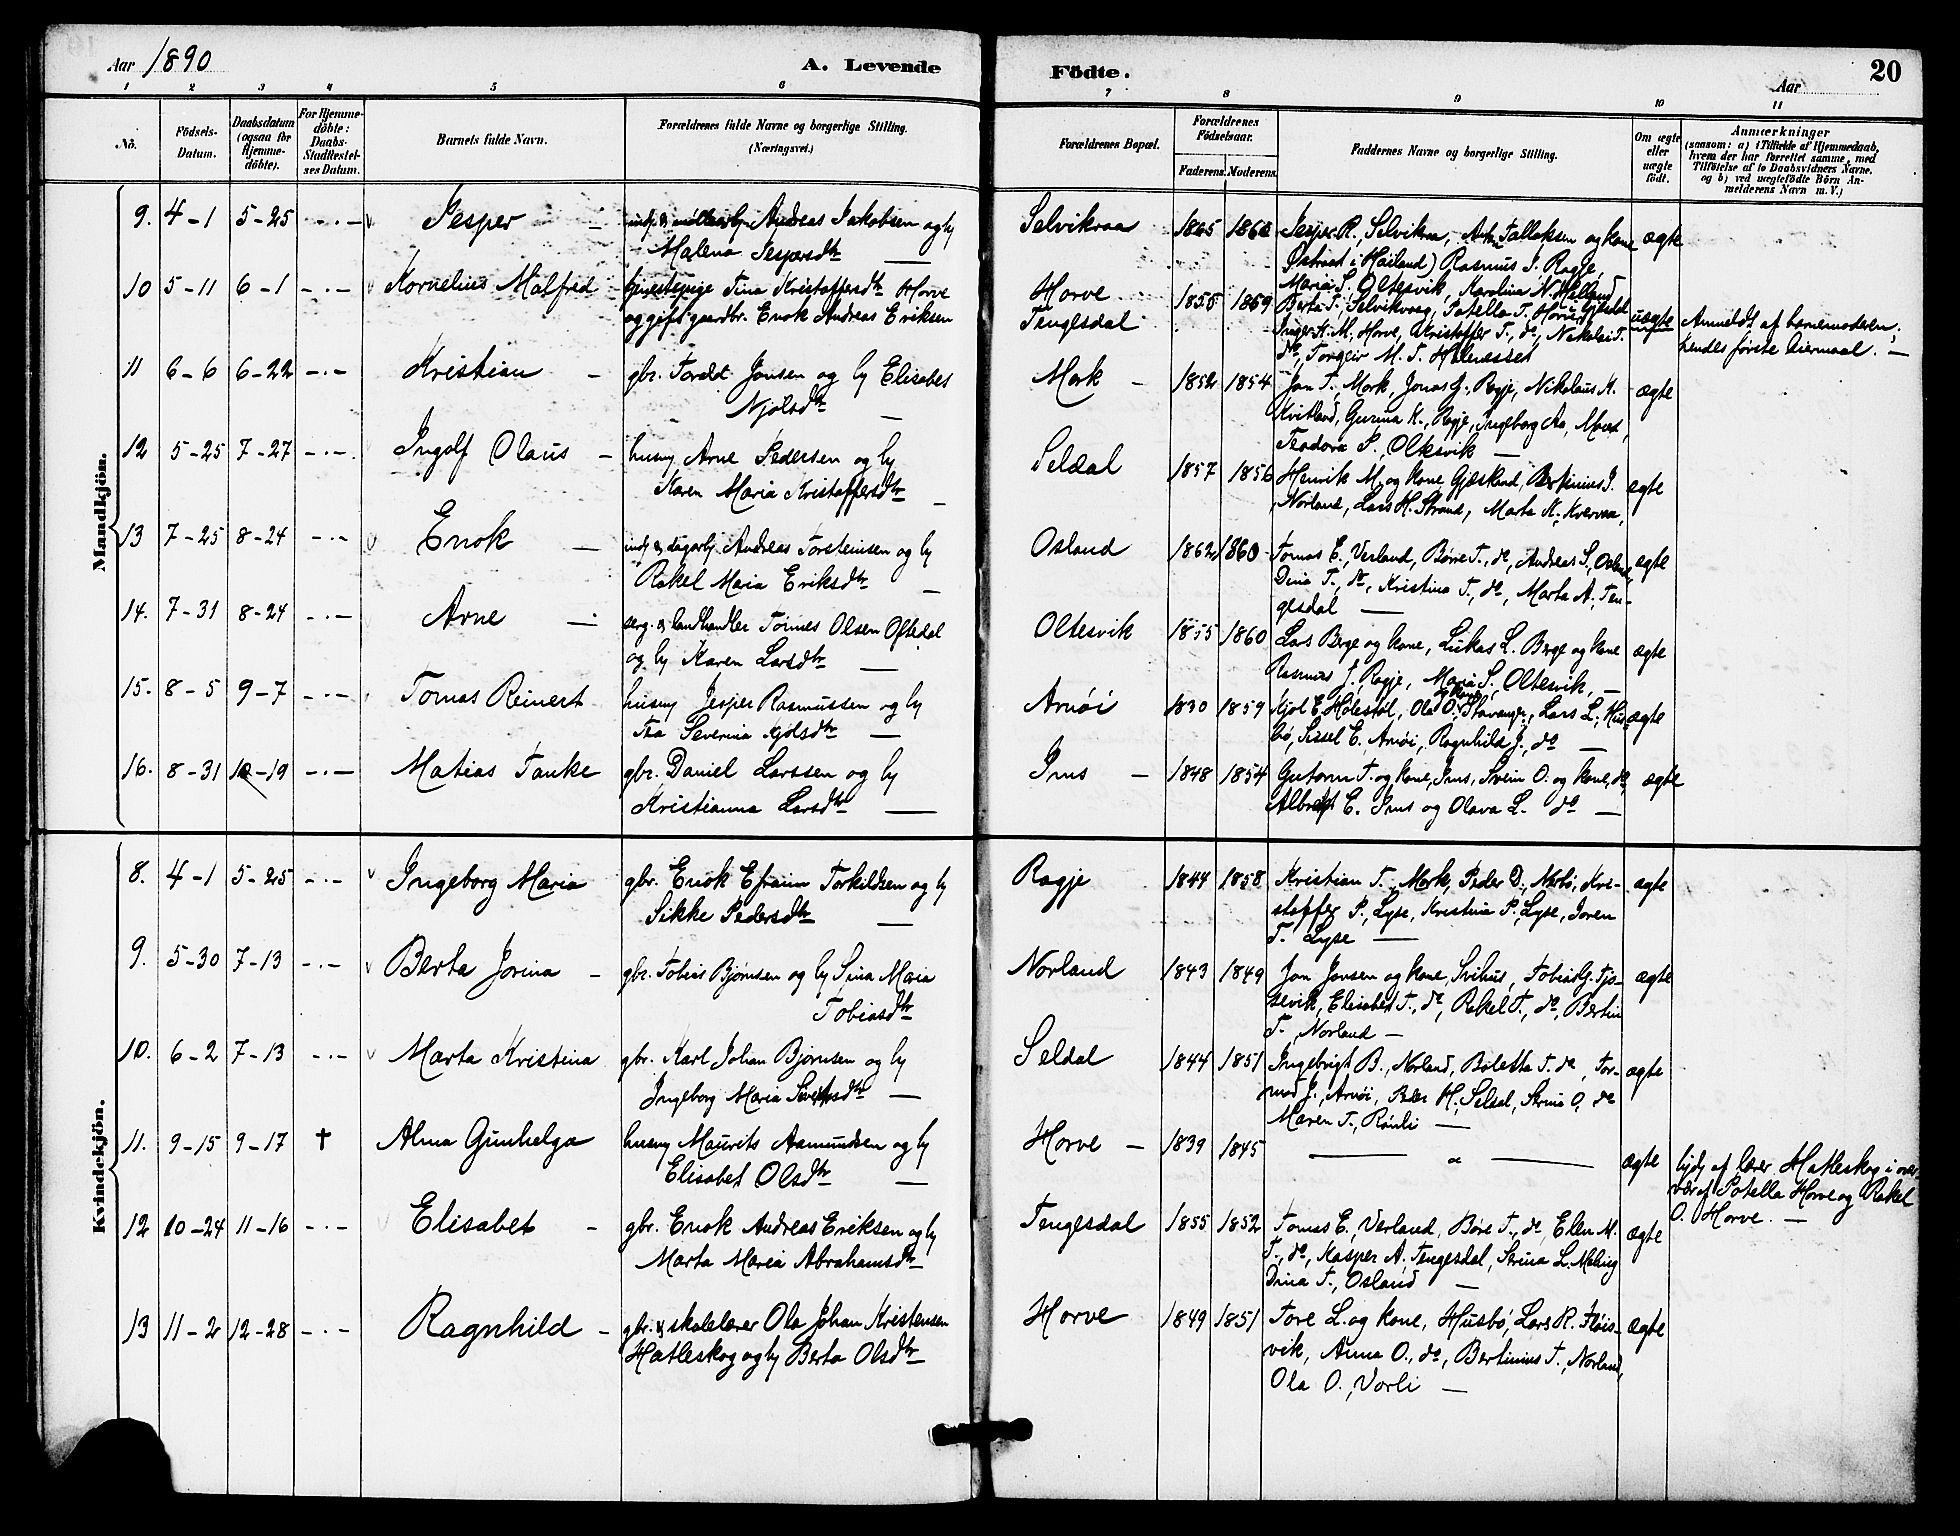 Aar 1890
A. Levende
Födte.
Aar
20
1 2 3 4 5 6 7 8 9 10 11
No.
Födsels-
Datum.
Daabsdatum
(ogsaa for
Hjemme-
döbte).
For Hjemme-
döbte:
Daabs-
Stadfæstel-
ses Datum.
Barnets fulde Navn.
Forældrenes fulde Navne og borgerlige Stilling.
(Næringsvei.)
Forældrenes Bopæl.
Forældrenes
Födselsaar.
Faderens. Moderens.
Faddernes Navne og borgerlige Stilling.
Om ægte
eller
uægte
födt.
Anmærkninger
(saasom: a) i Tilfælde af Hjemmedaab,
hvem der har forrettet samme, med
Tilföielse af to Daabsvidners Navne.
og b) ved uægtefödte Börn An-
melderens Navn m. V.)
Mandkjön.
9. 4-1 5-25 -.- Jesper - Andreas Jakobsen og hy
Malena Jespersdtr
Selvikvaa 1865 Jesper R., Selvikvaa, Tallaksen og kone
Østraat i Høiland) Rasmus J. Ragje, ægte
Maria S. Oltesvik, Karolina N. Helland
10 5-11 6-1 -.- Kornelius Malfred Tina Kristoffersdtr Horve
og gift gaardbr. Enok Andreas Eriksen
Horve
Tengesdal 1855 1869 Berta T., Selvikvaag,
Inger K. M., Horve, Kristoffer T., do, Nikolai T.
do, Torgeir M. T.
uægte Anmeldt af barnemoderen;
hendes første leiermaal. -
11 6-6 6-22 -.- Kristian - gbr. Jonsen og hy Elisabet
Njolsdtr -
Mork - 1852 1854 Jon T., Mork, Jonas J., Ragje, Nikolaus K.
Kvitland, Gurina K., Ragje, Ingeborg Aa,
Teodora S., Oltesvik -
ægte
12 5-25 7-27 -.-. Ingolf Olaus - husm Arne Pedersen og hy
Karen Maria Kristoffersdtr -
Seldal 1857 1856 Henrik M. og kone Gjesland, Bertinius J.
Norland, Lars H. Strand, Marta K. Kvervaa,
ægte
13 7-25 8-24 -.- Enok - Andreas Torsteinsen og hy
Rakel Maria Eriksdtr -
Osland 1862 1860 Tomas E., Verland, Børre T., do, Andreas S., Osland,
Dina T., do, Kristina T., do, Marta A., Ten-
gesdal -
ægte
14. 7-31 8-24 -.- Arne - serg. & landhandler Tørres Olsen Oftedal
og hy Karen Larsdtr -
Oltesvik 1855 1860 Lars Berge og kone, Lukas L. Berge og kone
Rasmus J., Ragje, Maria S., Oltesvik, -
ægte
15. 8-5 9-7 -.- Tomas Reinert husm Jesper Rasmussen og hy
Tea Severina Kjølsdtr -
Arnøi 1830 1859 Kjøl E. Holestøl, Ola O. Stavanger, Lars L., Hus-
bø, Sissel E. Arnøi, Ragnhild J., do -
ægte
16. 8-31 10-19 -.- Matias Tanke gbr. Daniel Larssen og hy
Kristianna Larsdtr -
Ims - 1848 1854 Gutorm T. og kone, Ims, Svein O. og kone, do,
Albregt E. Ims og Olava L. do -
ægte
Kvindekjön.
8. 4-1 5-25 -.- Ingeborg Maria gbr. Enok Efraim Torkildsen og hy
Sikke Pedersdtr -
Ragje 1844 1858 Kristian T., Mork, Peder D., Norbø, Kri-
stoffer P., Lyse, Kristina P., Lyse, Joren
T. Lyse -
ægte
9. 5-30 7-13 -.- Berta Jorina - gbr. Tobias Bjørnsen og hy Sina Maria
Tobiasdtr
Norland 1843 1849 Jon Jonsen og kone, Svihus, Tobias G. Tjo-
sevik, Elisabet T., do, Rakel T., do, Bertin
T., Norland -
ægte
10. 6-2 7-13 -.- Marta Kristina gbr. Karl Johan Bjørnsen og hy
Ingeborg Maria Sivertsdtr -
Seldal 1844 1851 Ingebrigt B., Norland, Boletta T. do, Tor-
mod J., Arnøi, Peder H., Seldal, Serina O., do
Maren T., Rönli -
ægte
11. 9-15 9-17 † Alma Gunhelga husm Maurits Asmundsen og hy
Elisabet Olsdtr -
Horve - 1839 1845 ægte
hjdp af lærer Hatleskog i over-
vær af Potella Horve og Rakel
O. Horve. -
12 10-24 11-16 -.- Elisabet - gbr. Enok Andreas Eriksen og hy
Marta Maria Abrahamsdtr
Tengesdal 1855 1852 Tomas E., Verland, Børe T., do, Elen M.
T., do, Kasper A. Tengesdal, Serina L. Maling
Dina T., Osland -
ægte
13 11-2 12-28 -.- Ragnhild - gbr. & skolelærer Ola Johan Kristensen
Hatleskog og hy Berta Olsdtr
Horve 1849 1851 Tore L. og kone, Husbø, Lars R. Fløis-
vik, Anna O., do, Bertinius T., Norland,
Ola O., Vorli -
ægte